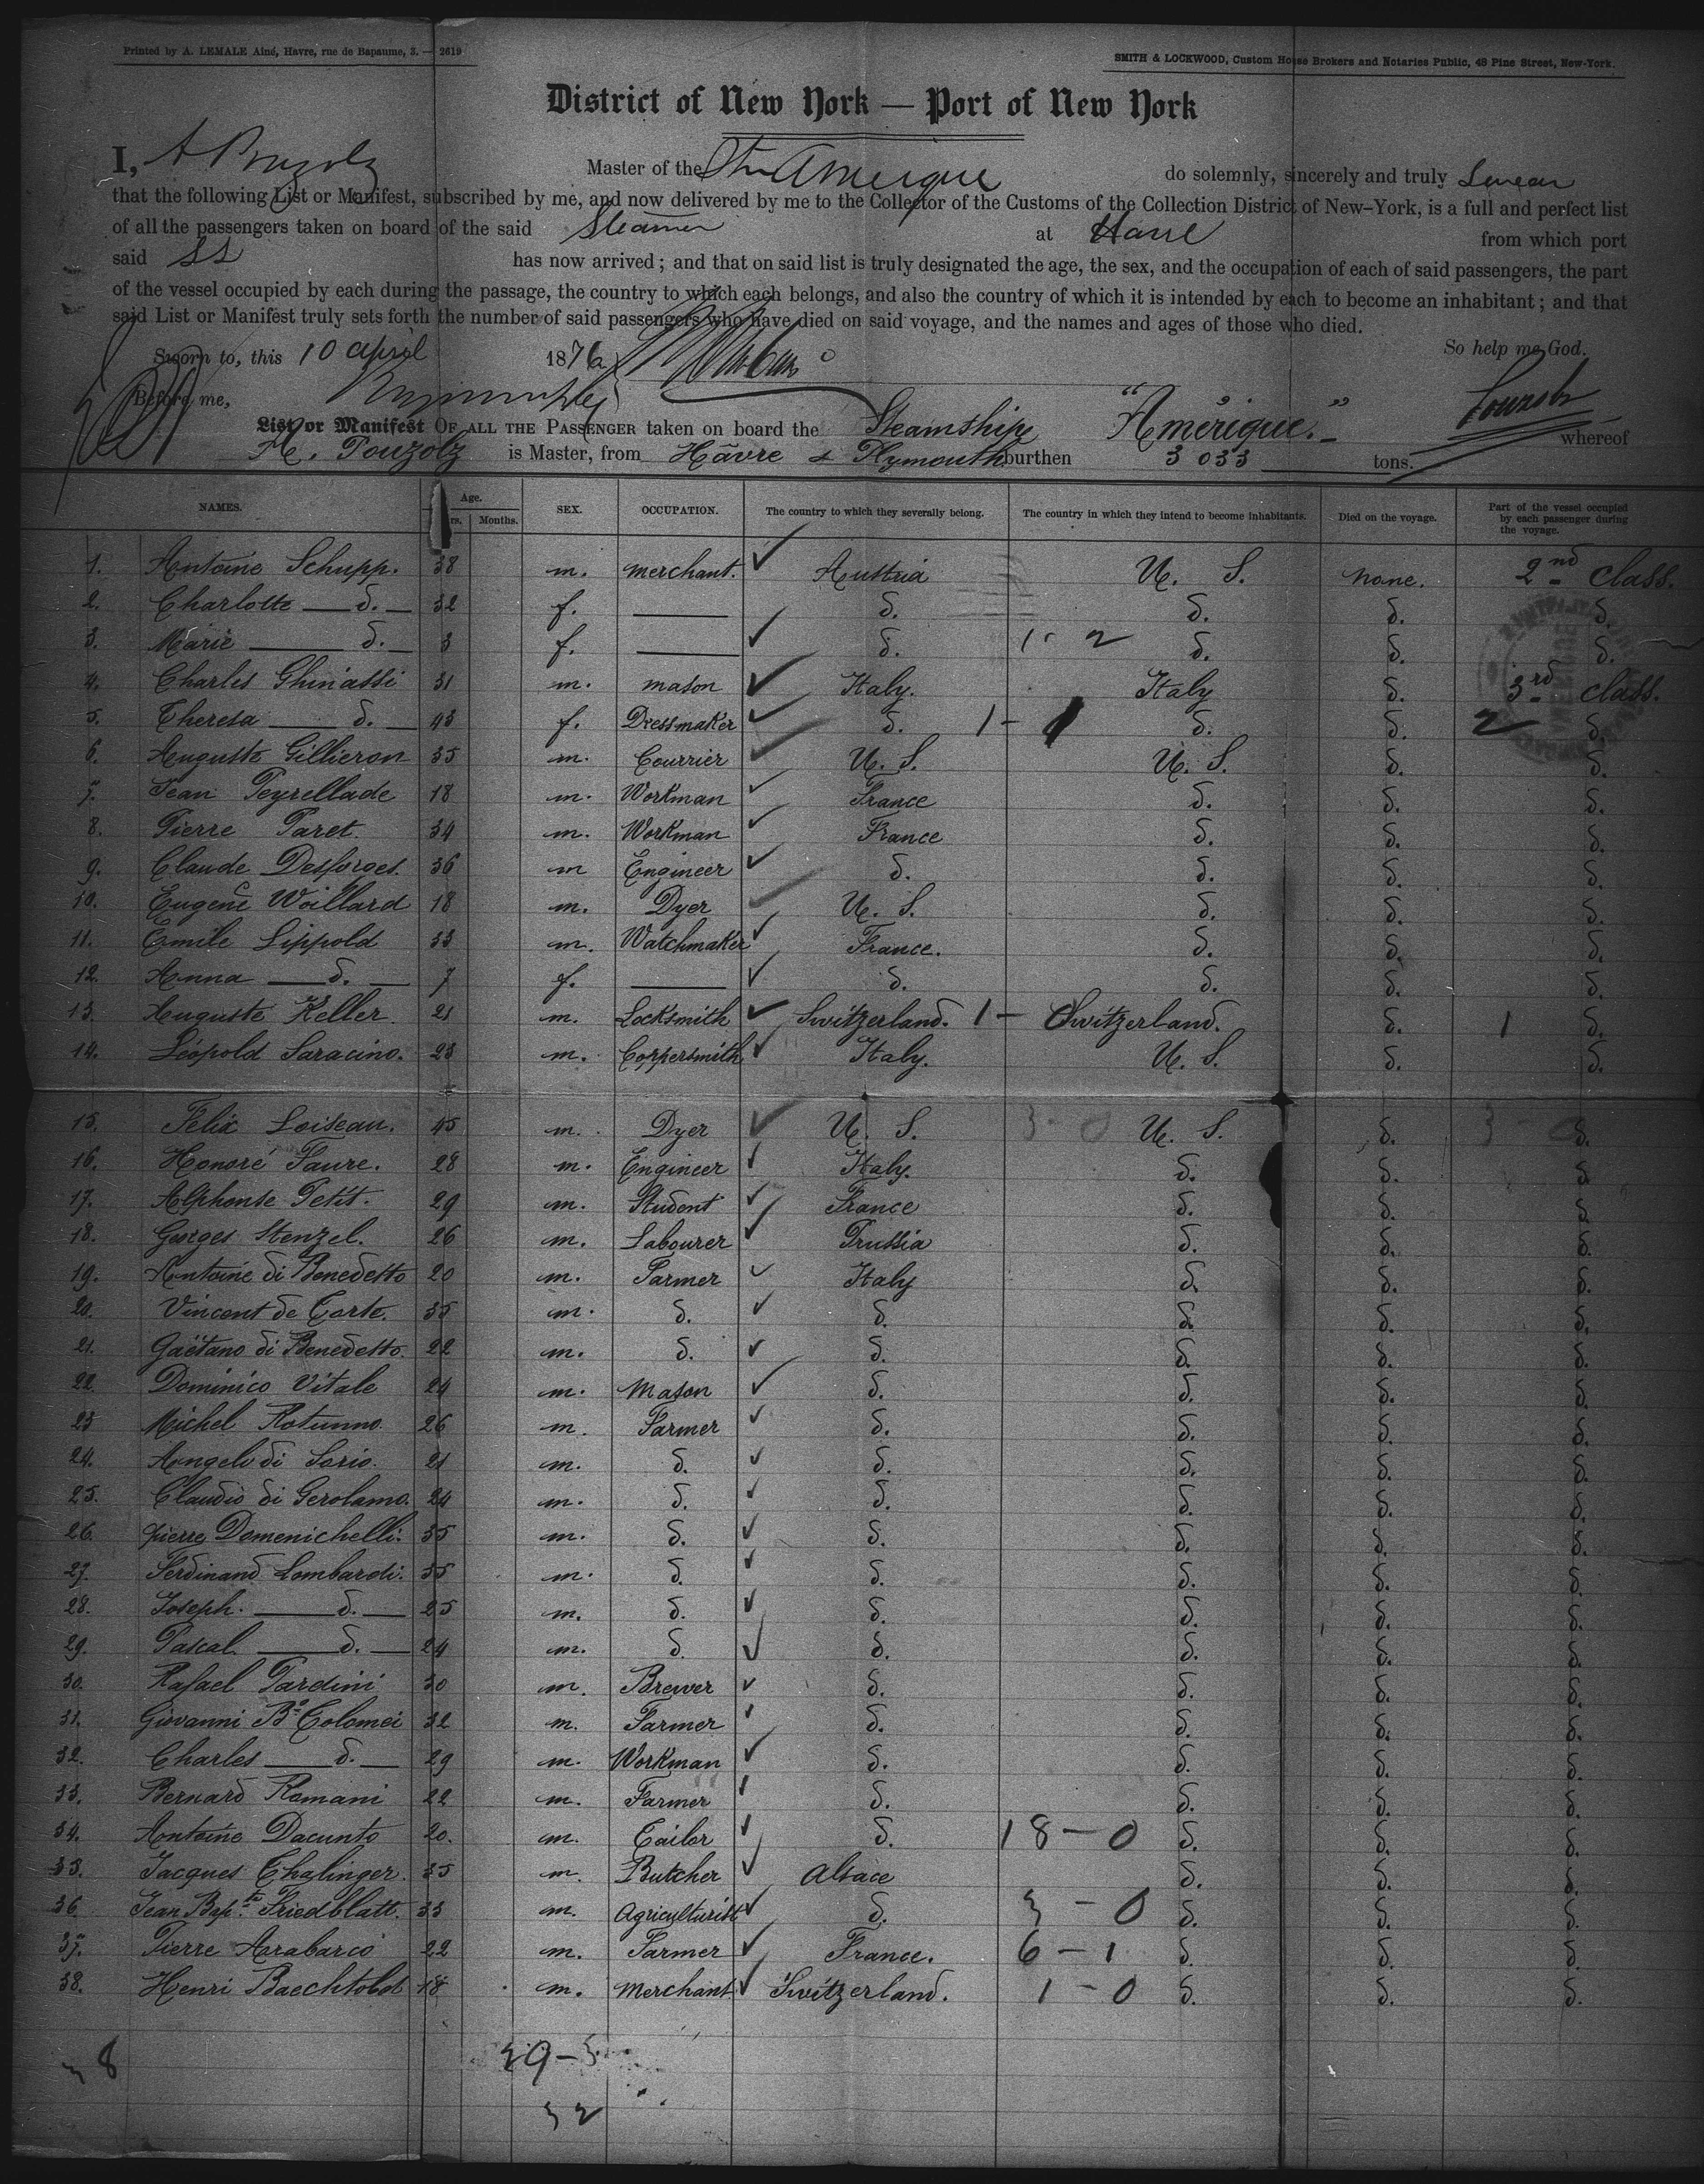 Printed by A. LEMALE Ainé, Havre, rue de Bapaume, 3. — 2619
SMITH & LOCKWOOD, Custom House Brokers and Notaries Public, 48 Pine Street, New-York.
District of New York — Port of New York
I, A Pouzolz Master of the Str Amerique do solemnly, sincerely and truly Swear
that the following List or Manifest, subscribed by me, and now delivered by me to the Collector of the Customs of the Collection District of New-York, is a full and perfect list
of all the passengers taken on board of the said Steamer at Havre from which port
said SS has now arrived; and that on said list is truly designated the age, the sex, and the occupation of each of said passengers, the part
of the vessel occupied by each during the passage, the country to which each belongs, and also the country of which it is intended by each to become an inhabitant; and that
said List or Manifest truly sets forth the number of said passengers who have died on said voyage, and the names and ages of those who died.
Sworn to, this 10 april 1876 So help me God.
Before me,
List or Manifest OF ALL THE PASSENGER taken on board the Steamship "Amérique." whereof
A. Pouzolz is Master, from Hâvre & Plymouth burthen 3033 tons.
NAMES. Age. Yrs. Months. SEX. OCCUPATION. The country to which they severally belong. The country in which they intend to become inhabitants. Died on the voyage. Part of the vessel occupied by each passenger during the voyage.
1. Antoine Schupp. 38 m. merchant. Austria U. S. none. 2nd class.
2. Charlotte — d. — 32 f. — d. d. d. d.
3. Marie — d. — 3 f. — d. 1 - 2 d. d. d.
4. Charles Ghinassi 31 m. mason Italy. Italy d. 3rd class.
5. Theresa — d. — 43 f. Dressmaker d. 1 - 1 d. d. 2 d.
6. Auguste Gillieron 35 m. Courrier U. S. U. S. d. d.
7. Jean Peyrellade 18 m. Workman France d. d. d.
8. Pierre Paret. 34 m. Workman France d. d. d.
9. Claude Desforges. 36 m Engineer d. d. d. d.
10. Eugene Woillard 18 m. Dyer U. S. d. d. d.
11. Emile Lippold 33 m. Watchmaker France. d. d. d.
12. Anna — d. — 7 f. — d. d. d. d.
13. Auguste Keller. 21 m. Locksmith Switzerland. 1 - Switzerland. d. 1 d.
14. Léopold Saracino. 23 m. Coppersmith Italy. U. S. d. d.
15. Felix Loiseau. 45 m. Dyer U. S. 3 - 0 U. S. d. 3 d.
16. Honoré Faure. 28 m. Engineer Italy. d. d. d.
17. Alphonse Petit. 29 m. Student France d. d. d.
18. Georges Stenzel. 26 m. Labourer Prussia d. d. d.
19. Antoine di Benedetto 20 m. Farmer Italy d. d. d.
20. Vincent de Corte. 35 m. d. d. d. d. d.
21. Gaëtano di Benedetto. 22 m. d. d. d. d. d.
22. Dominico Vitale 24 m. Mason d. d. d. d.
23 Michel Rotunno. 26 m. Farmer d. d. d. d.
24. Angelo di Iorio. 21 m. d. d. d. d. d.
25. Claudio di Gerolamo. 24 m. d. d. d. d. d.
26. pierre Domenichelli. 35 m. d. d. d. d. d.
27. Ferdinand Lombardi. 35 m. d. d. d. d. d.
28. Joseph. — d. — 25 m. d. d. d. d. d.
29. Pascal — d. — 24 m. d. d. d. d. d.
30. Rafael Pardini 30 m. Brewer d. d. d. d.
31. Giovanni Bo Colomei 32 m. Farmer d. d. d. d.
32. Charles — d. — 29 m. Workman d. d. d. d.
33. Bernard Romani 22 m. Farmer d. d. d. d.
34. Antoine Dacunto 20. m. Tailor d. 18 - 0 d. d. d.
35. Jacques Thalinger. 35 m. Butcher Alsace d. d. d.
36. Jean Bapte. Friedblatt. 33 m. Agriculturist d. 3 - 0 d. d. d.
37. Pierre Arabarco 22 m. Farmer France. 6 - 1 d. d. d.
38. Henri Baechtold 18 m. Merchant Switzerland. 1 - 0 d. d. d.
38 29-3
32